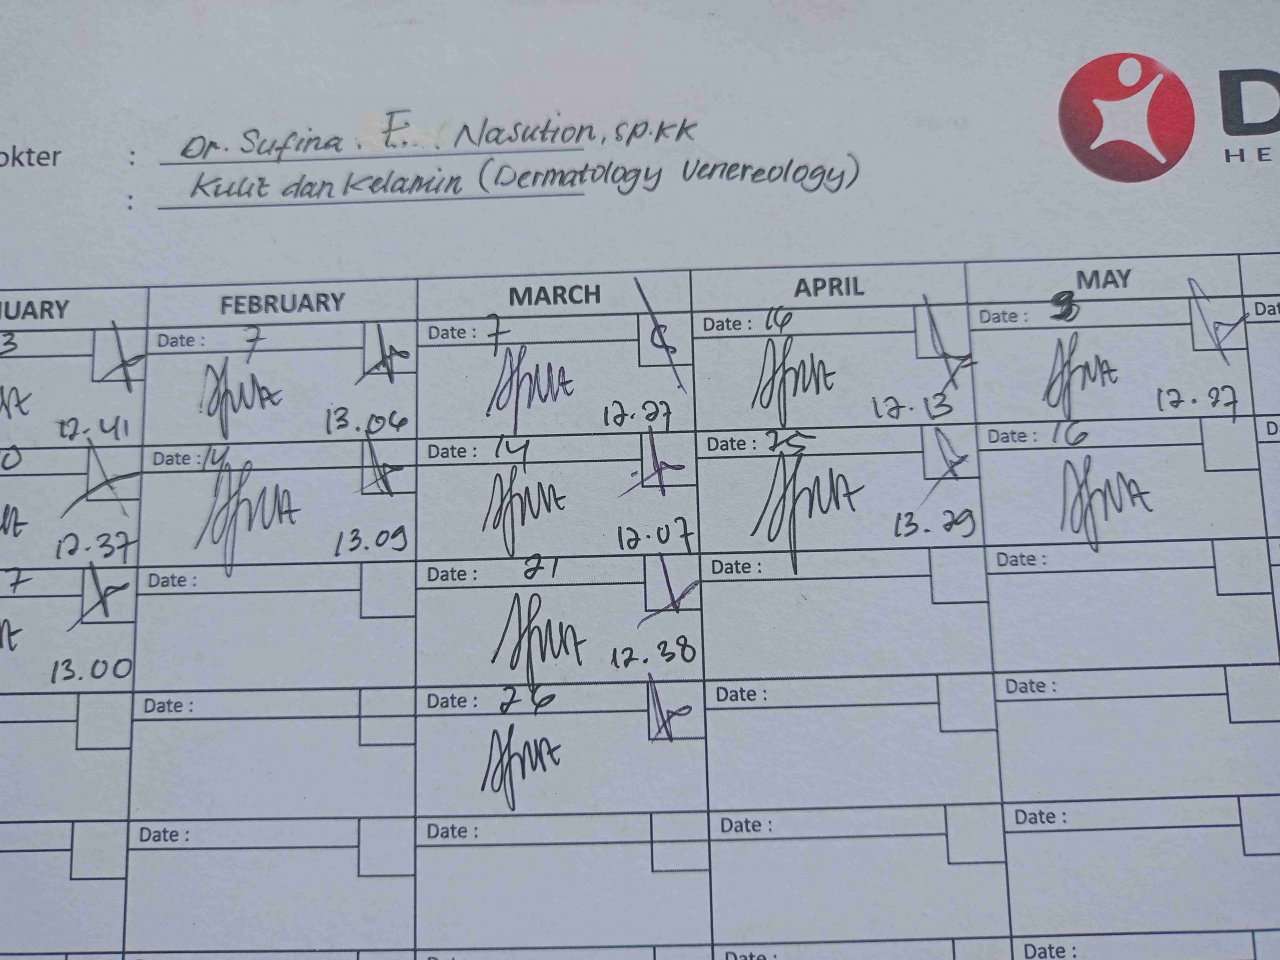 Dr. Sufina. E. Nasution, SP.KK
okter :
Kulit dan Kelamin (Dermatology Venereology)
:
D
HE
UARY FEBRUARY MARCH APRIL MAY
3 Date : 7 Date : 7 Date : 16 Date : Dat
12.41 13.06 12.27 12.13 12.27
0 Date : 14 Date : 14 Date : 25 Date : 16 D
12.37 13.09 12.07 13.29
7 Date : Date : 21 Date : Date :
13.00 12.38
Date : Date : 26 Date : Date :
Date : Date : Date : Date :
Date : Date :